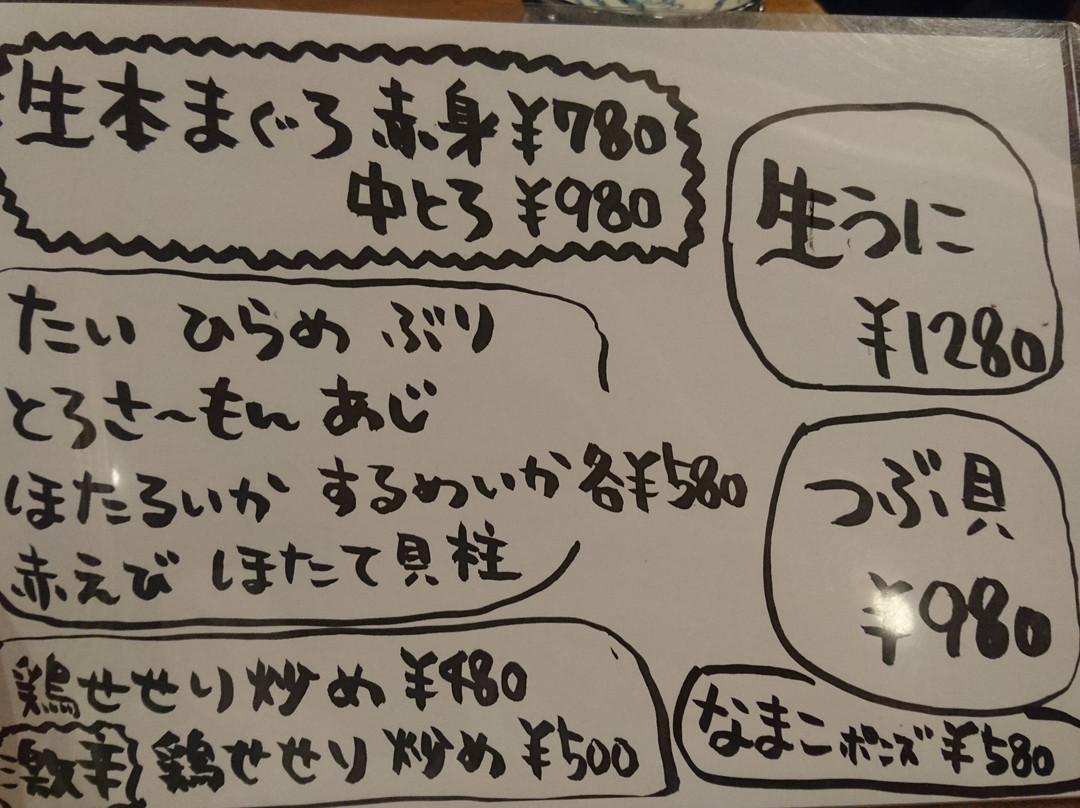 生本まぐろ 赤身 ¥780
中とろ ¥980
生うに
¥1280
たい ひらめ ぶり
とろさ〜もん あじ
ほたるいか するめいか 各¥580
赤えび ほたて貝柱
つぶ貝
¥980
鶏せせり炒め ¥480
激辛 鶏せせり炒め ¥500
なまこポン��ズ ¥580